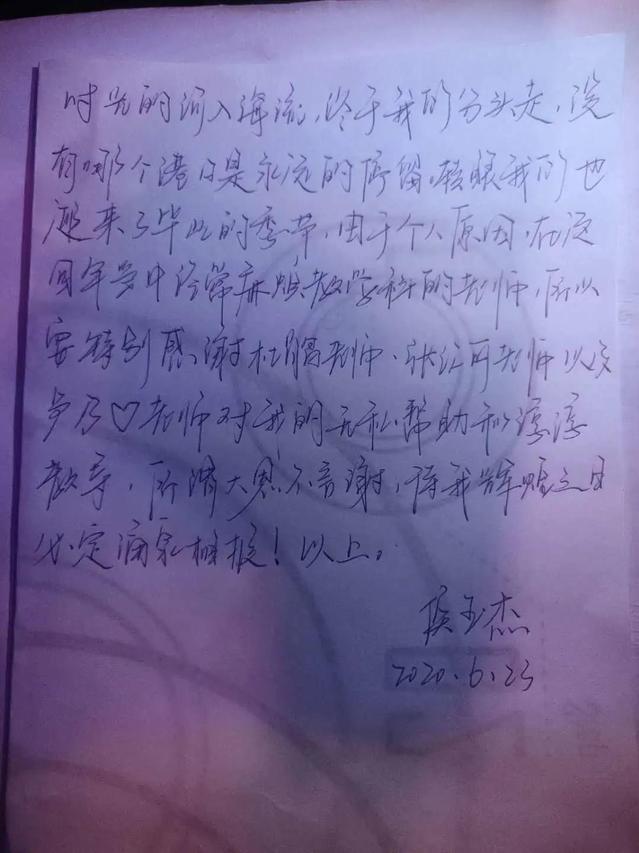 时光的河入海流,终于我们分头走,没
有哪个港口是永远的停留,转眼我们也
迎来了毕业的季节,由于个人原因,在这
四年当中经常麻烦教学科的老师,所以
要特别感谢杜鹃老师、张江可老师以及
♡老师对我的无私帮助和谆谆
教导,所谓大恩不言谢,待我辉煌之日
必定涌泉相报!以上。
侯玉杰
2020.6.23